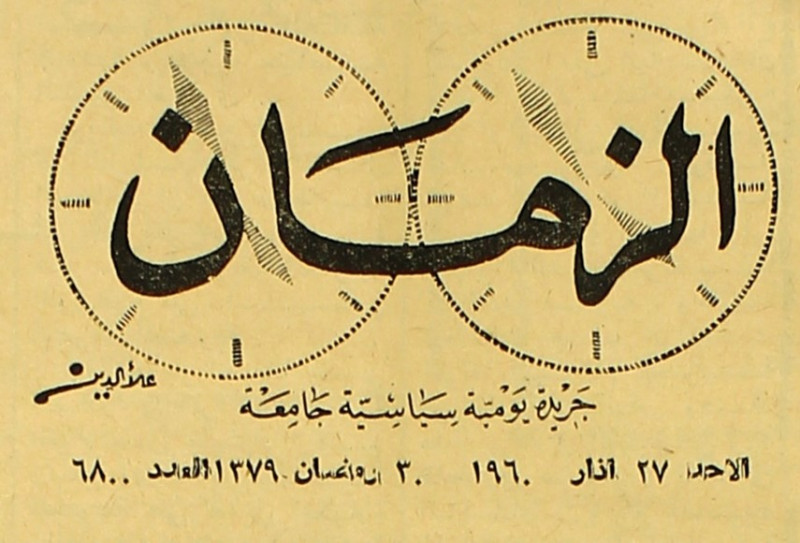 الزمان
علاء الدين
جَرْيْدة يَوْميّة سِيَاسِيّة جَامِعَة
الاحد ٢٧ اذار ١٩٦٠ ٣٠ رمضان ١٣٧٩ العدد ٦٨٠٠